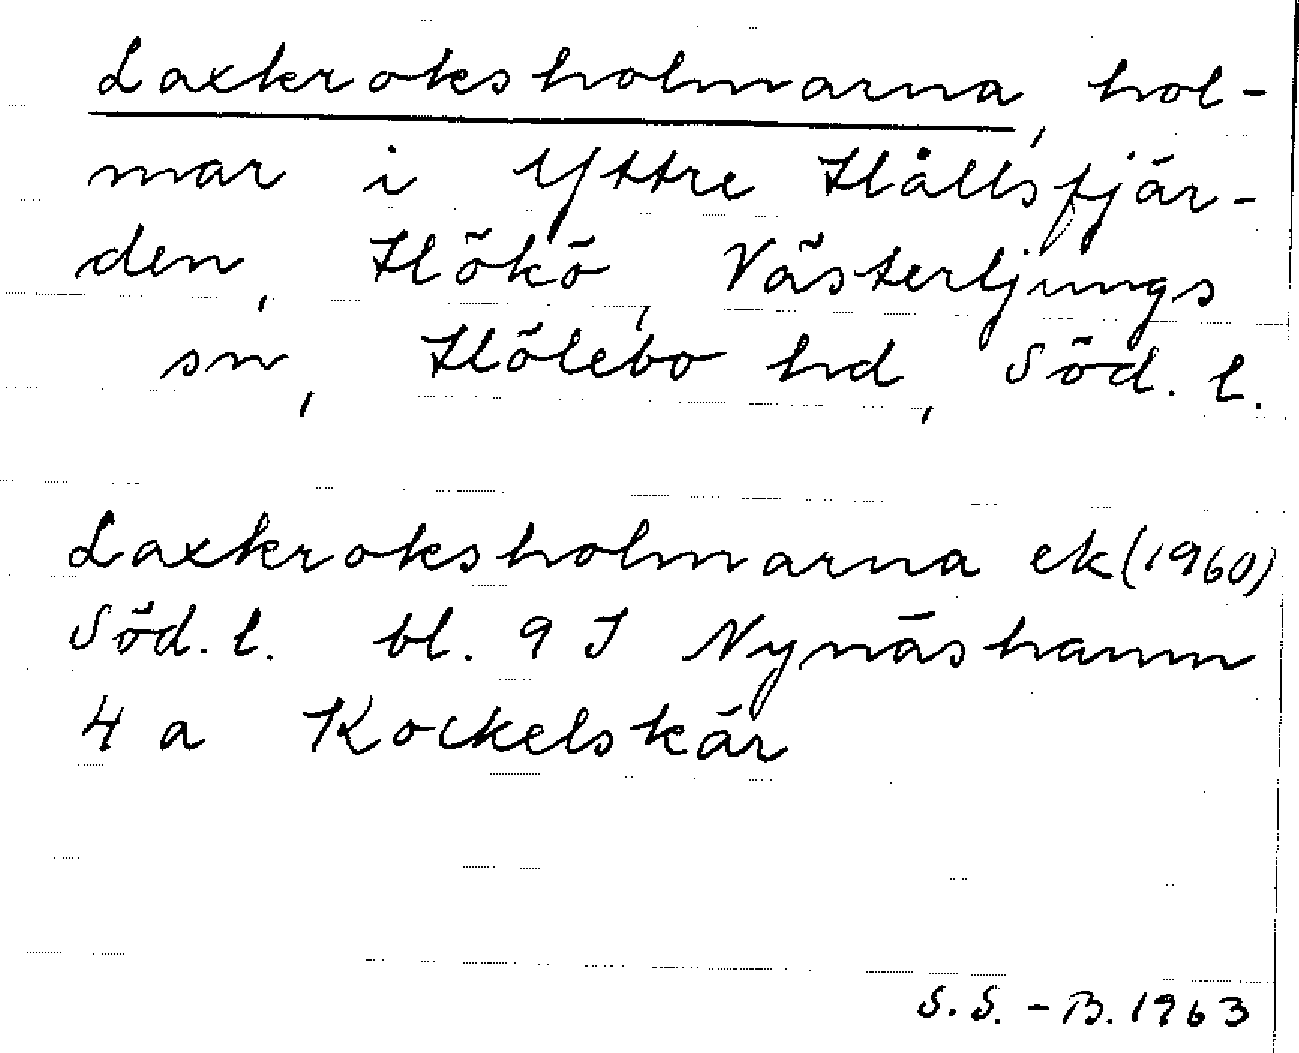 Laxkroksholmarna, hol-
mar i Yttre Hållsfjär-
den, Hökö, Västerljungs
sn, Hölebo hd, Söd. l.
Laxkroksholmarna ek (1960)
Söd. l. bl. 9 I Nynäshamn
4 a Kockelskär
S. S. - B. 1963